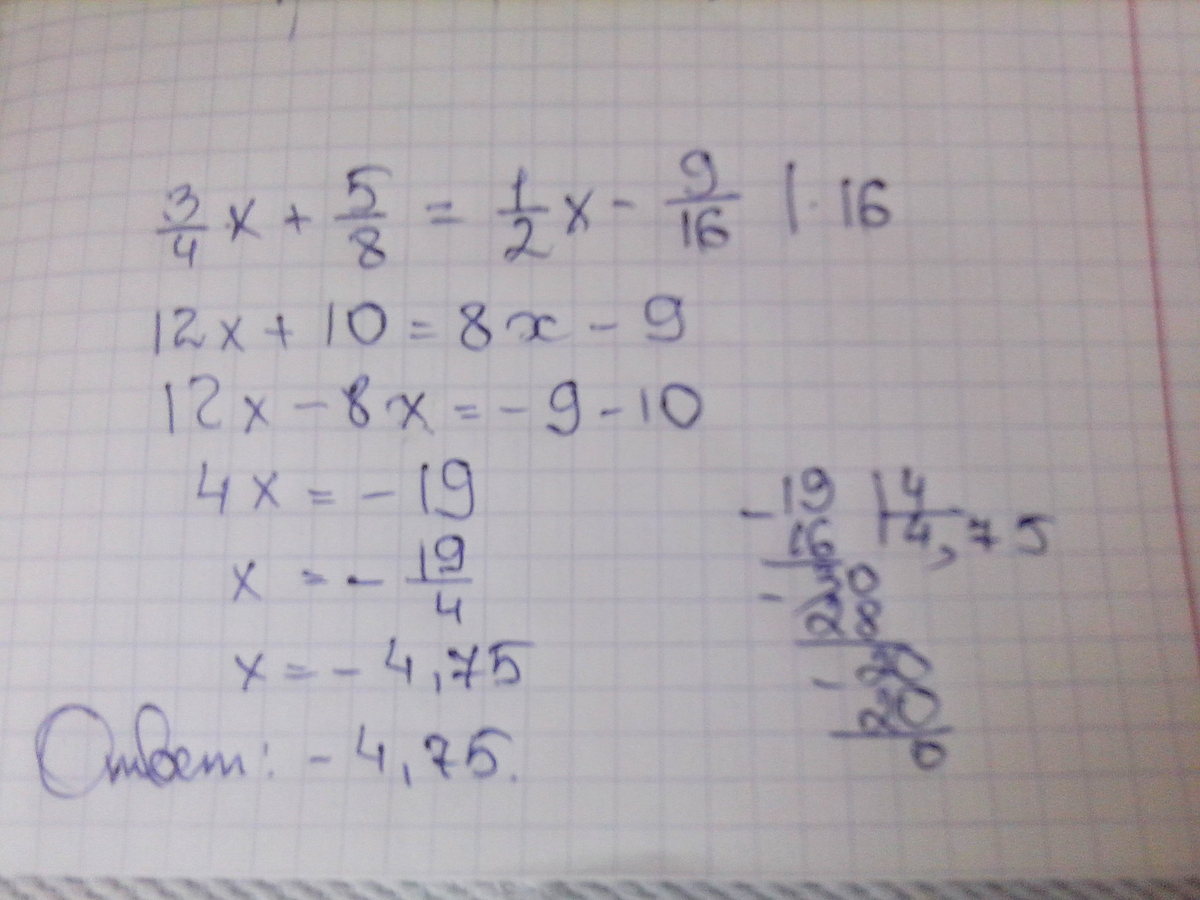 3/4 x + 5/8 = 1/2 x - 9/16 | · 16
12x + 10 = 8x - 9
12x - 8x = - 9 - 10
4x = - 19
x = - 19/4
x = - 4,75
Ответ: - 4,75.
- 19 | 4
16 | 4,75
30
- 28
20
- 20
0